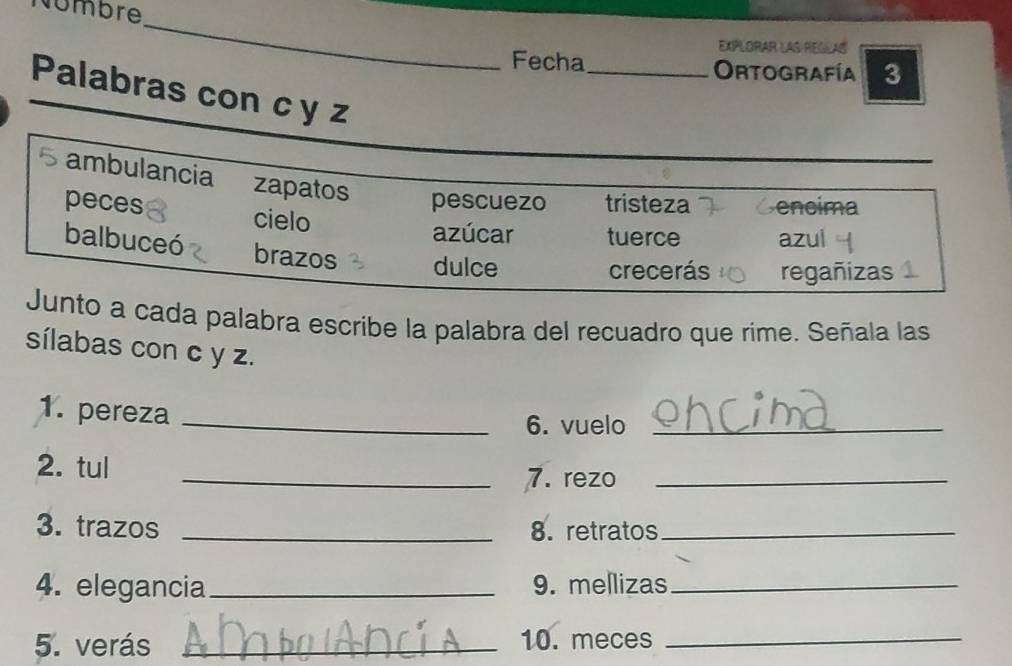 Nombre
Fecha
EXPLORAR LAS REGLAS
ORTOGRAFÍA 3
Palabras con c y z
5 ambulancia zapatos pescuezo tristeza 7 6 encima
peces 8 cielo azúcar tuerce azul 4
balbuceó 2 brazos 3 dulce crecerás 10 regañizas 1
Junto a cada palabra escribe la palabra del recuadro que rime. Señala las
sílabas con c y z.
1. pereza
2. tul
3. trazos
4. elegancia
5. verás AmbolAnciA
6. vuelo encima
7. rezo
8. retratos
9. mellizas
10. meces